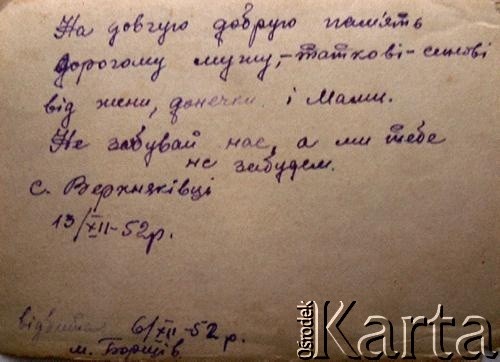 На довгую добрую память
дорогому мужу,-таткові-синові
від жени, донечки і Мами.
Не забувай нас, а ми тебе
не забудем.
с. Верхняківці
13/XII-52р.
6/XII-52 р.
м. Борщів
Ośrodek
Karta